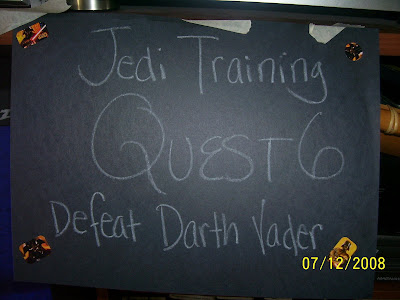 Jedi Training
Quest 6
Defeat Darth Vader
07/12/2008